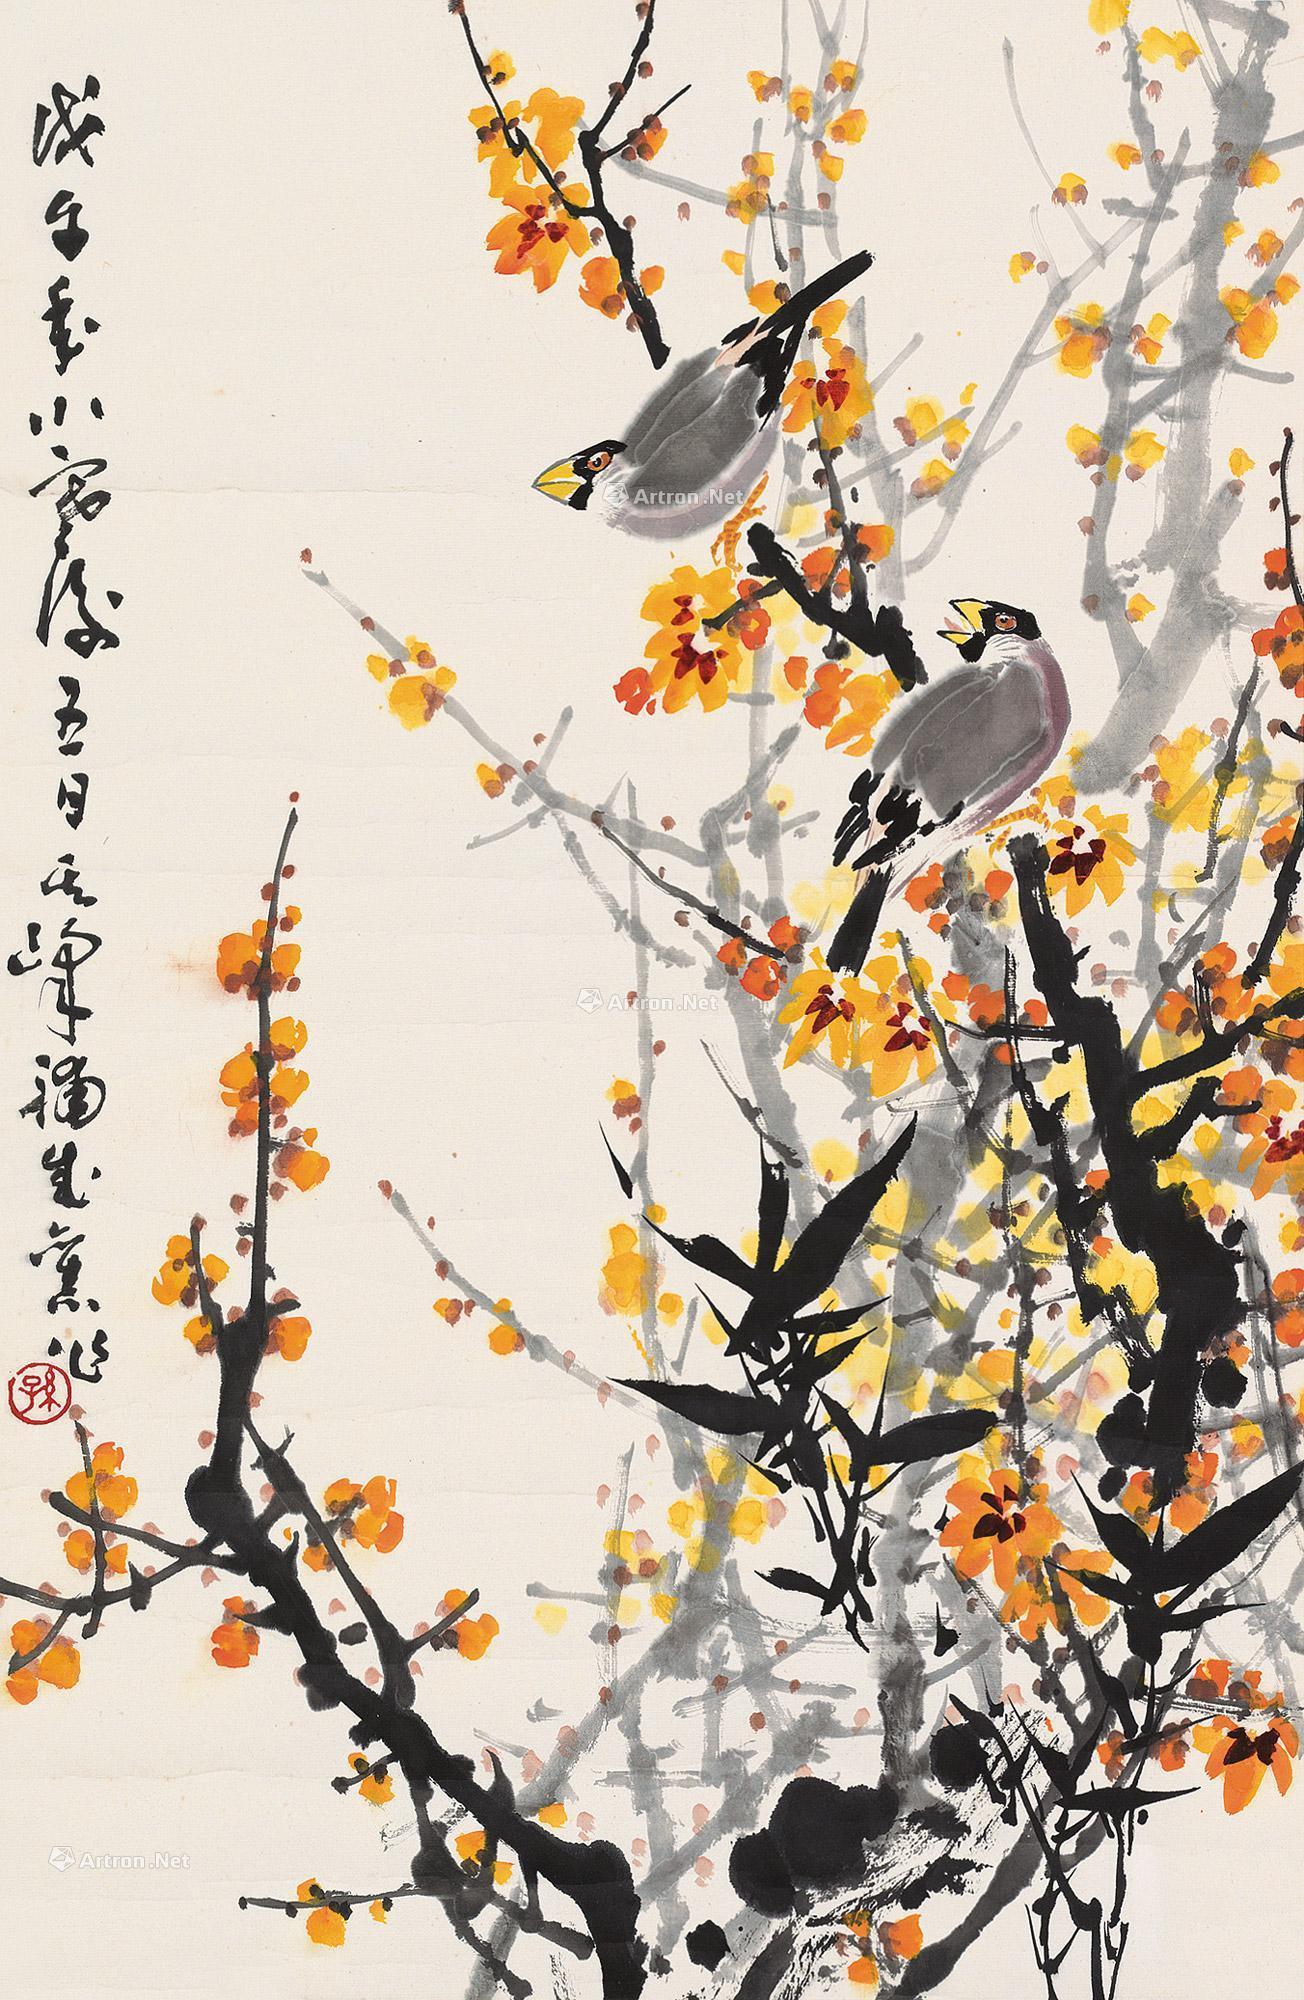 戊午年小寒後五日其峰補成舊作
孫
Artron.Net
Artron.Net
Artron.Net